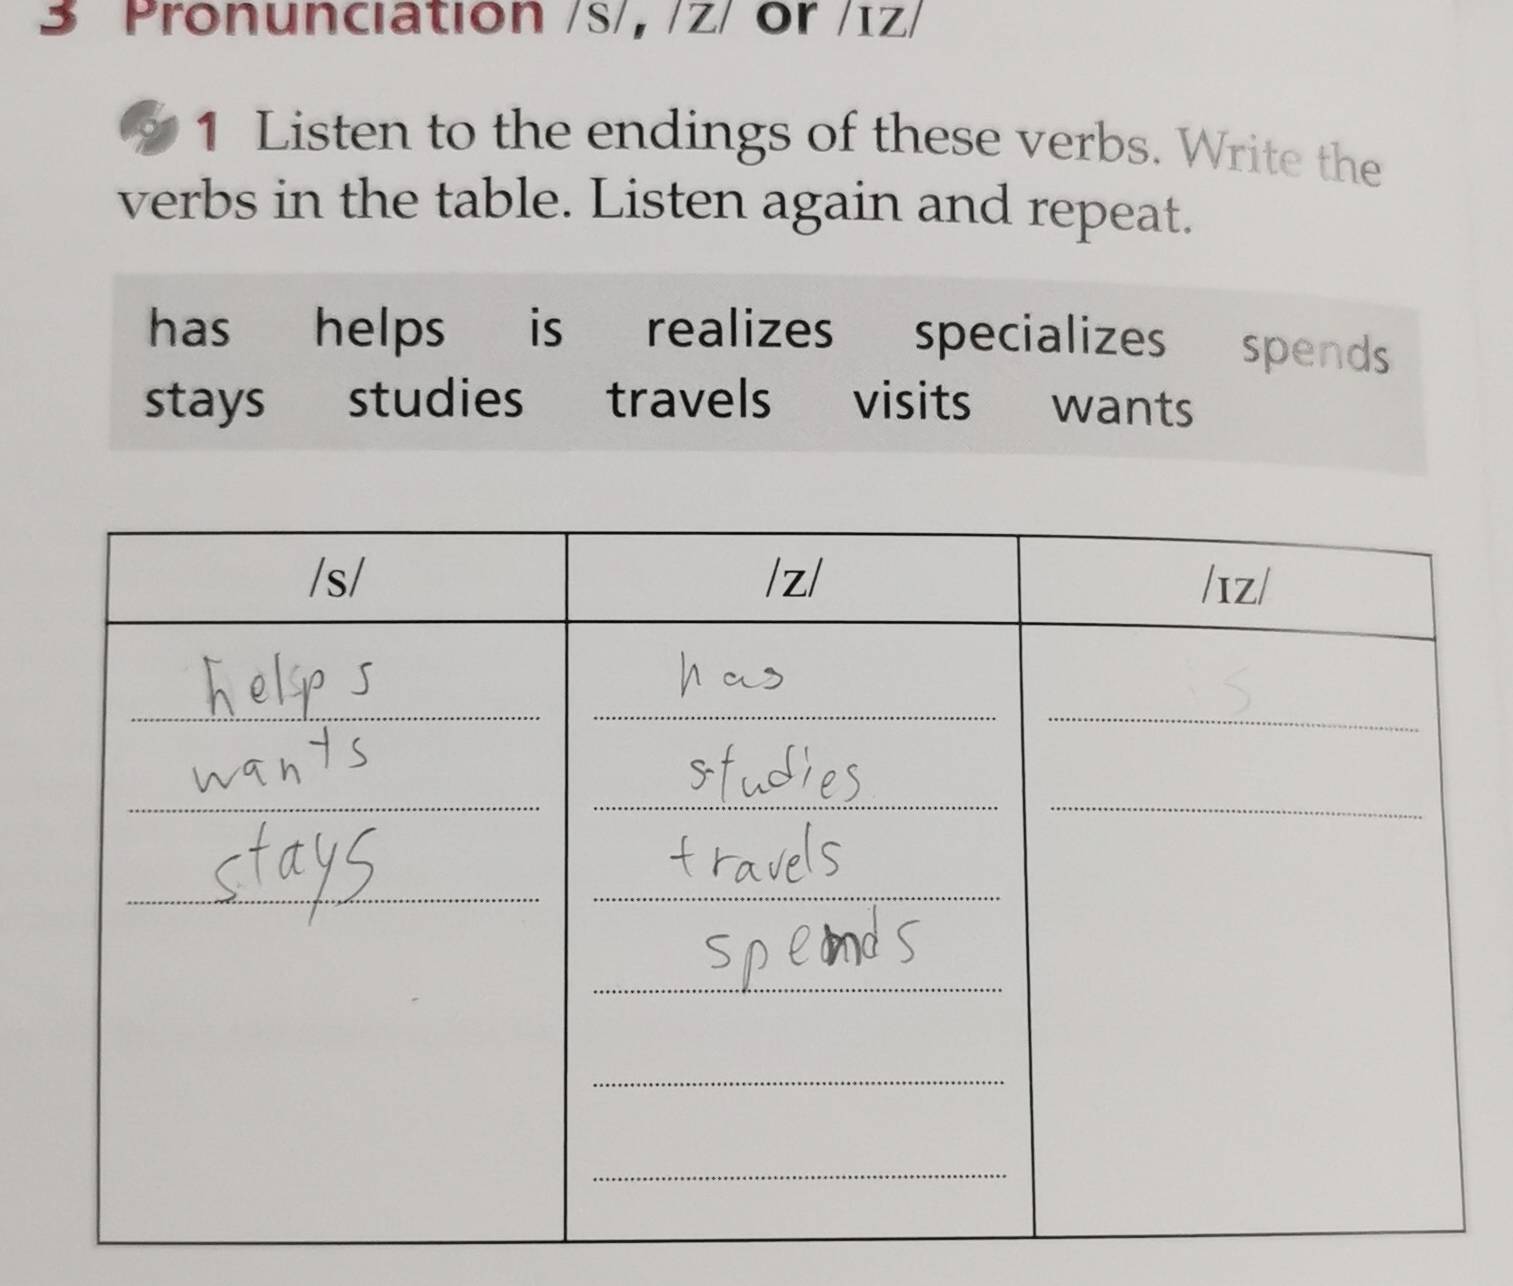 3 Pronunciation /s/, /z/ or /ɪz/
1 Listen to the endings of these verbs. Write the
verbs in the table. Listen again and repeat.
has helps is realizes specializes spends
stays studies travels visits wants
/s/ /z/ /ɪz/
helps has is
wants studies
stays travels
spends